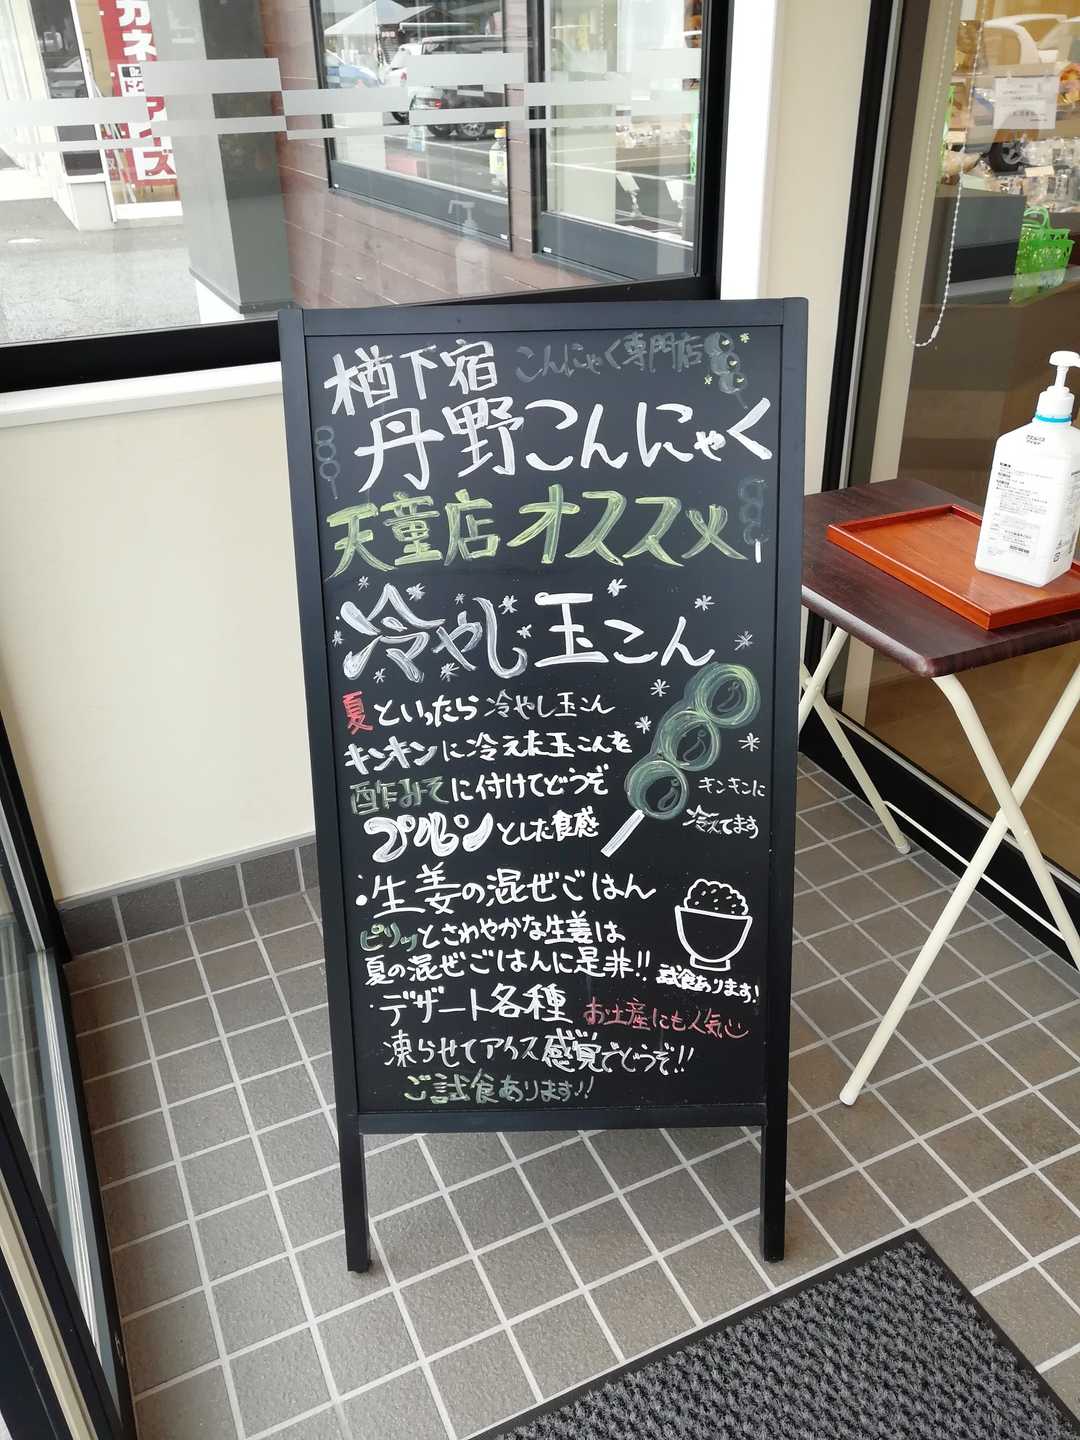 楢下宿 こんにゃく専門店
丹野こんにゃく
天童店 オススメ
冷やし玉こん
夏といったら冷やし玉こん
キンキンに冷えた玉こんを
酢みそに付けてどうぞ
プルンプルンとした食感
キンキンに
冷えてます
・生姜の混ぜごはん
ピリッとさわやかな生姜は
夏の混ぜごはんに是非!!
試食あります!
・デザート各種 お土産にも人気
凍らせてアイス感覚でどうぞ!!
ご試食あります!!